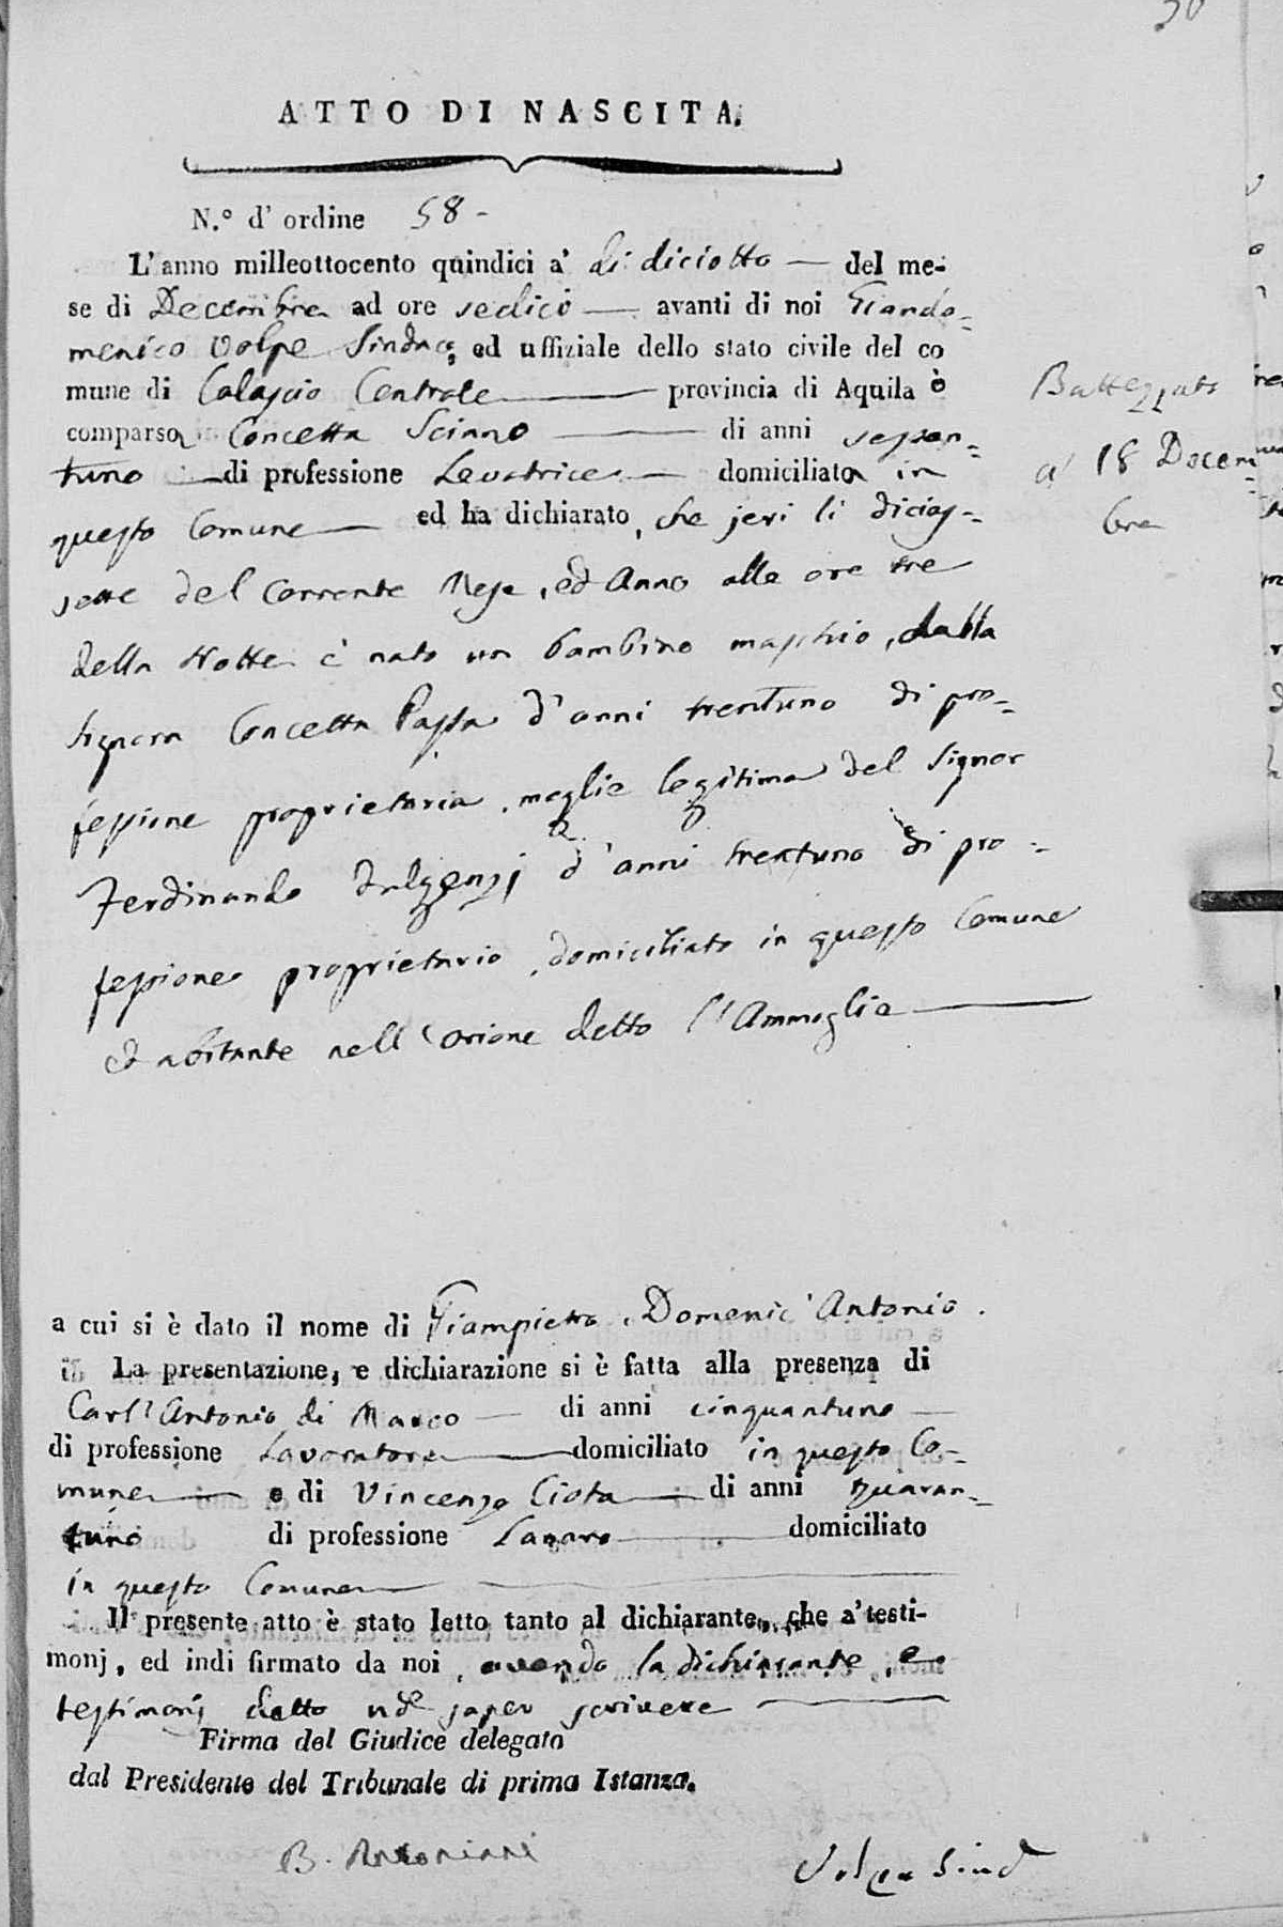 30
ATTO DI NASCITA.
N.° d' ordine 58 -
L'anno milleottocento quindici a' dì diciotto — del me-
se di Decembre ad ore sedici — avanti di noi Giando-
menico Volpe Sindaco, ed uffiziale dello stato civile del co
mune di Calascio Centrale — provincia di Aquila è
comparsa Concetta Scianno — di anni sessan-
tuno — di professione Levatrice — domiciliata in
questo Comune — ed ha dichiarato, che jeri li dicias-
sette del corrente Mese, ed Anno alle ore tre
della Notte è nato un bambino maschio, dalla
Signora Concetta Passa d'anni trentuno di pro-
fessione proprietaria, moglie legitima del Signor
Ferdinando Fulgenzj d'anni trentuno di pro-
fessione proprietario, domiciliato in questo Comune
ed abitante nell'orione detto l'Ammoglie —
Battezzato
a' 18 Decem-
bre
a cui si è dato il nome di Giampietro, Domenic'Antonio.
La presentazione, e dichiarazione si è fatta alla presenza di
Carl'Antonio di Marco — di anni cinquantuno —
di professione Lavoratore — domiciliato in questo Co-
mune — e di Vincenzo Ciota — di anni quaran-
tuno di professione Lanaro — domiciliato
in questo Comune —
Il presente atto è stato letto tanto al dichiarante, che a' testi-
monj, ed indi firmato da noi, avendo la dichiarante, e
testimonj detto non saper scrivere —
Firma del Giudice delegato
dal Presidente del Tribunale di prima Istanza.
B. Antoniani
Volpe Sind